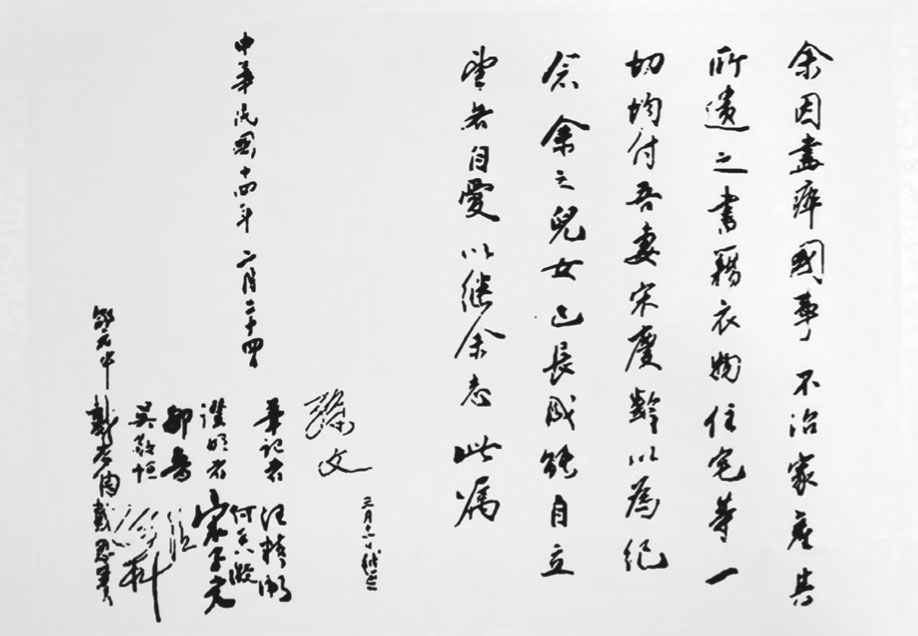 余因盡瘁國事不治家產其
所遺之書籍衣物住宅等一
切均付吾妻宋慶齡以為紀
念余之兒女已長成能自立
望各自愛以继余志此属
中華民國十四年二月二十四日
孫文 三月十一日補簽
筆記者 汪精衛
何香凝
證明者 宋子文
孔
鄒魯
孫科
吳敬恒
戴恩賽
邵元冲
戴季陶